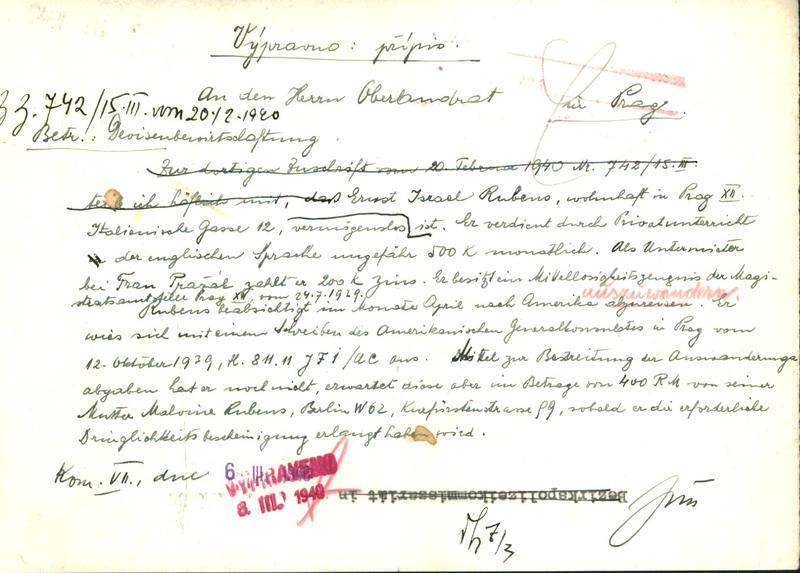 Výpravno: přípis.
An den Herrn Oberlandrat in Prag.
Z. 742/15.III. vom 20/2.1940
Betr.: Devisenbewirtschaftung.
Zur dortigen Zuschrift vom 20. Februar 1940 Nr. 742/15.III.
teile ich höflichst mit, dass Ernst Israel Rubens, wohnhaft in Prag XII.
Italienische Gasse 12, vermögenslos ist. Er verdient durch Privatunterricht
der englischen Sprache ungefähr 500 K monatlich. Als Untermieter
bei Frau Pražák zahlt er 200 K Zins. Er besitzt ein Mittellosigkeitszeugnis der Magi-
stratsamtsfiler Prag XII. vom 24.7.1939.
auszuwandern.
Rubens beabsichtigt im Monate April nach Amerika abzureisen. Er
wies sich mit einem Schreiben des Amerikanischen Generalkonsulates in Prag vom
12. Oktober 1939, N. 811.11 JFI/AC aus. Mittel zur Bestreitung der Auswanderungs
abgaben hat er noch nicht, erwartet diese aber im Betrage von 400 RM von seiner
Mutter Malvine Rubens, Berlin W 62, Kurfürstenstrasse 99, sobald er die erforderliche
Dringlichkeitsbescheinigung erlangt haben wird.
Kom. VII., dne 6 III. 1940
VYPRAVENO
8. III. 1940
Bezirkspolizeikommissariat in
7/3